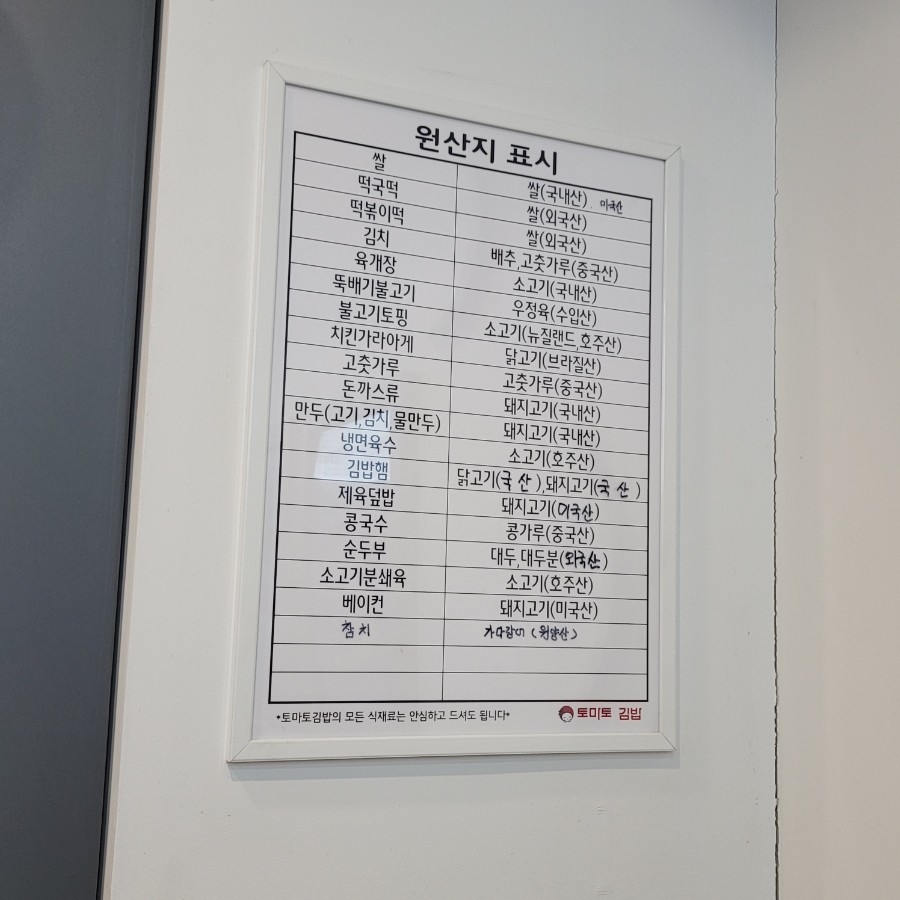 원산지 표시
쌀 쌀(국내산). 미국산
떡국떡 쌀(외국산)
떡볶이떡 쌀(외국산)
김치 배추,고춧가루(중국산)
육개장 소고기(국내산)
뚝배기불고기 우정육(수입산)
불고기토핑 소고기(뉴질랜드,호주산)
치킨가라아게 닭고기(브라질산)
고춧가루 고춧가루(중국산)
돈까스류 돼지고기(국내산)
만두(고기,김치,물만두) 돼지고기(국내산)
냉면육수 소고기(호주산)
김밥햄 닭고기(국산),돼지고기(국산)
제육덮밥 돼지고기(미국산)
콩국수 콩가루(중국산)
순두부 대두,대두분(외국산)
소고기분쇄육 소고기(호주산)
베이컨 돼지고기(미국산)
참치 가다랑어(원양산)
*토마토김밥의 모든 식재료는 안심하고 드셔도 됩니다*
토마토 김밥